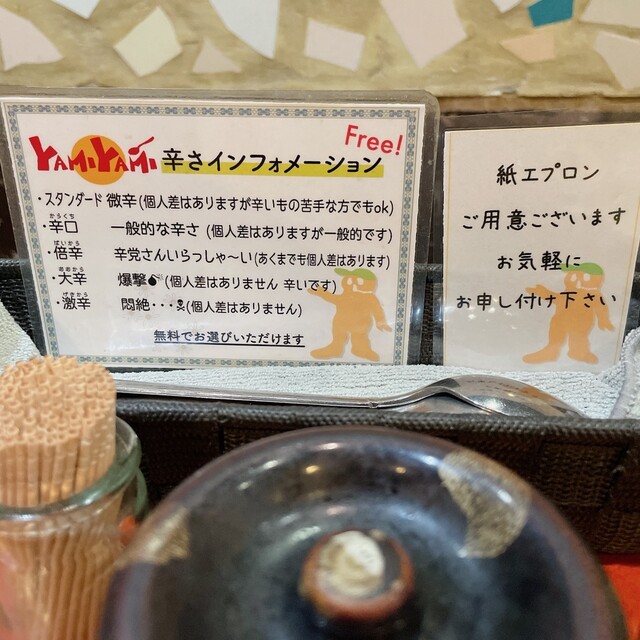 Free!
YAMIYAMI 辛さインフォメーション
・スタンダード 微辛(個人差はありますが辛いもの苦手な方でもok)
からくち
・辛口 一般的な辛さ (個人差はありますが一般的です)
ばいから
・倍辛 辛党さんいらっしゃ〜い(あくまでも個人差はあります)
おおから
・大辛 爆撃💣(個人差はありません 辛いです)
げきから
・激辛 悶絶・・・☠(個人差はありません)
無料でお選びいただけます
紙エプロン
ご用意ございます
お気軽に
お申し付け下さい